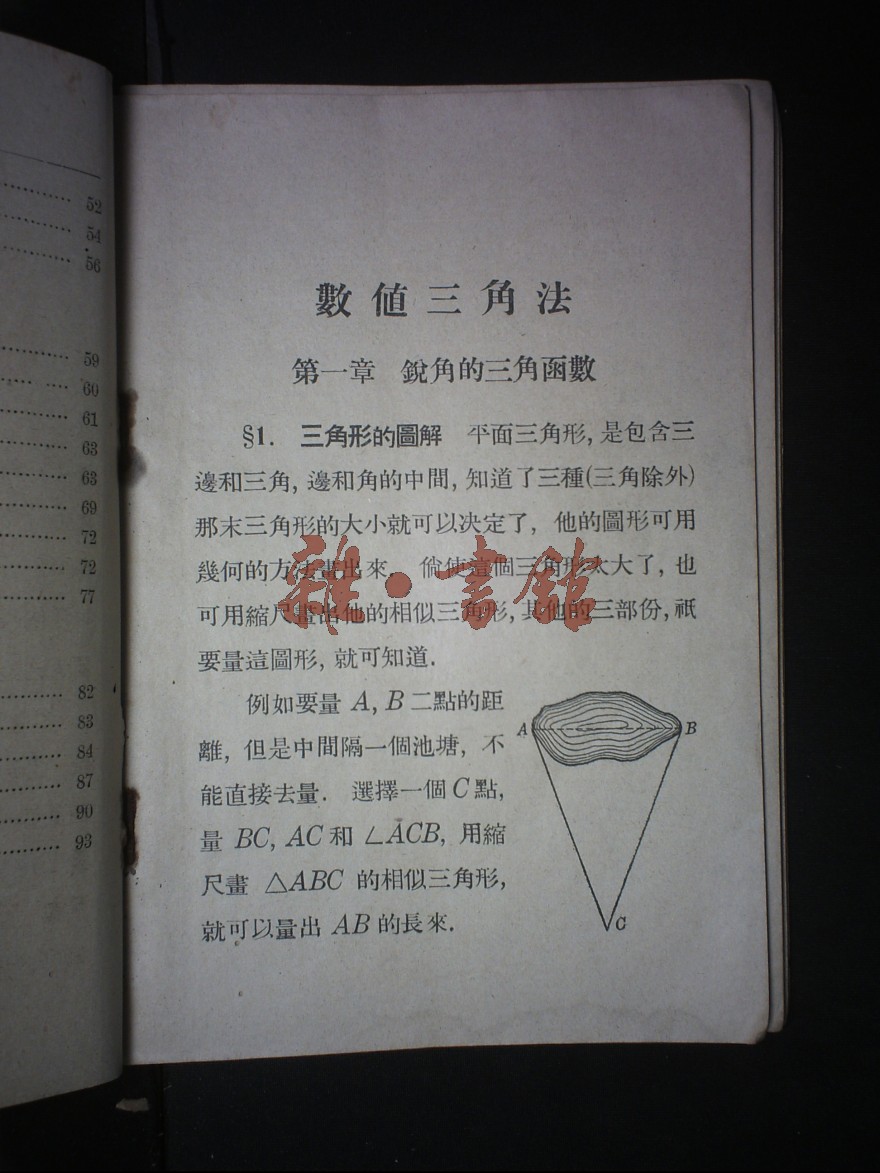 52
54
56
59
60
61
63
63
69
72
72
77
82
83
84
87
90
93
數值三角法
第一章 銳角的三角函數
§1. 三角形的圖解 平面三角形, 是包含三
邊和三角, 邊和角的中間, 知道了三種(三角除外)
那末三角形的大小就可以決定了, 他的圖形可用
幾何的方法畫出來. 倘使這個三角形太大了, 也
可用縮尺畫出他的相似三角形, 其他的三部份, 祇
要量這圖形, 就可知道.
例如要量 A, B 二點的距
離, 但是中間隔一個池塘, 不
能直接去量. 選擇一個 C 點,
量 BC, AC 和 ∠ACB, 用縮
尺畫 △ABC 的相似三角形,
就可以量出 AB 的長來.
A
B
C
雜·書館